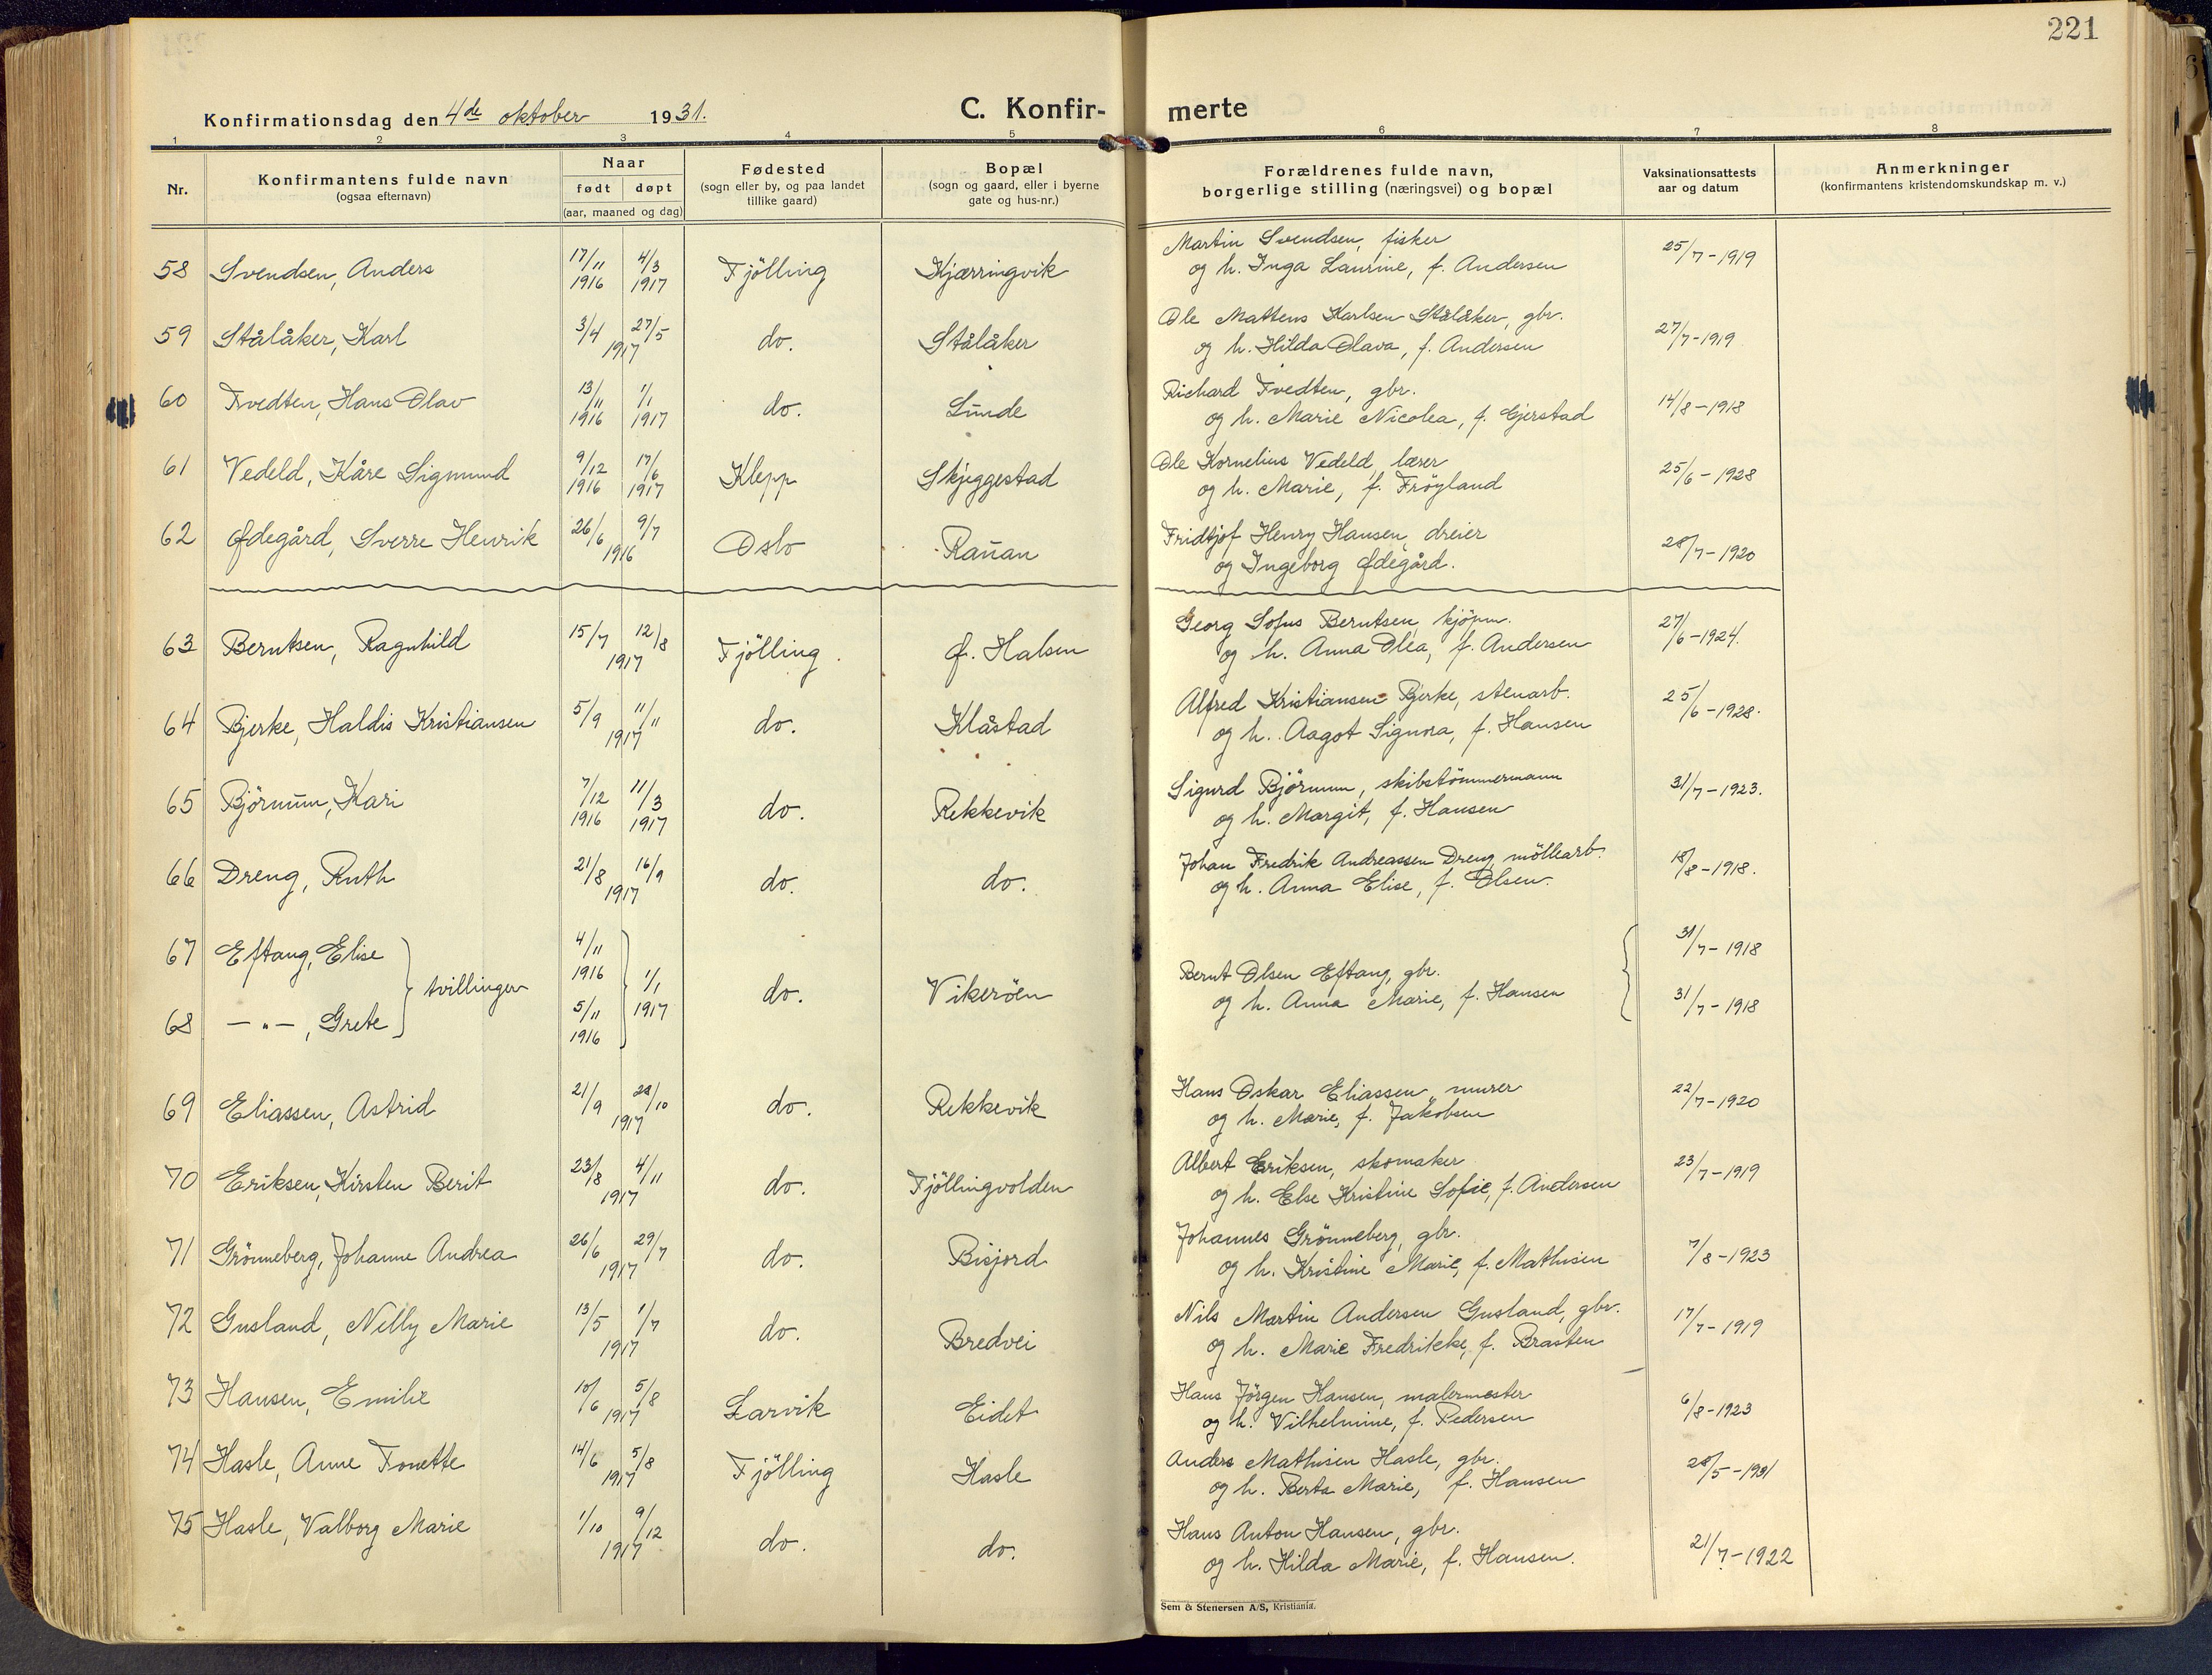 221
Konfirmationsdag den 4de oktober 1931.
C. Konfir-
merte
1 2 3 4 5 6 7 8
Nr.
Konfirmantens fulde navn
(ogsaa efternavn)
Naar
født døpt
(aar, maaned og dag)
Fødested
(sogn eller by, og paa landet
tillike gaard)
Bopæl
(sogn og gaard, eller i byerne
gate og hus-nr.)
Forældrenes fulde navn,
borgerlige stilling (næringsvei) og bopæl
Vaksinationsattests
aar og datum
Anmerkninger
(konfirmantens kristendomskundskap m. v.)
58 Svendsen, Anders 17/11 1916 4/3 1917 Fjölling Kjærringvik
Martin Svendsen, fisker
og h. Inga Laurine, f. Andersen
25/7-1919
59 Stålåker, Karl 3/4 27/5 1917 do. Stålåker
Ole Mattens Karlsen Stålåker, gbr.
og h. Hilda Olava, f. Andersen
27/7-1919
60 Tvedten, Hans Olav 13/11 1916 1/1 1917 do. Lunde
Richard Tvedten, gbr.
og h. Marie Nicolea, f. Gjerstad
14/8-1918
61 Vedeld, Kåre Sigmund 9/12 1916 17/6 1917 Klepp Skjeggestad
Ole Kornelius Vedeld, lærer
og h. Marie, f. Fröyland
25/6-1928
62 Ødegård, Sverre Henrik 26/6 9/7 1916 Oslo Rauan
Fridtjof Henry Hansen, dreier
og Ingeborg Ødegård.
28/7-1920
63 Berntsen, Ragnhild 15/7 12/8 1917 Fjölling. Ø. Halsen
Georg Sofus Berntsen, kjöpm.
og h. Anna Olea, f. Andersen
27/6-1924.
64 Bjerke, Haldis Kristiansen 5/9 11/11 1917 do. Klåstad
Alfred Kristiansen Bjerke, stenarb.
og h. Aagot Signora, f. Hansen
25/6-1928.
65 Björnum, Kari 7/12 1916 11/3 1917 do. Rekkevik
Sigurd Björnum, skibstömmermann
og h. Margit, f. Hansen
31/7-1923.
66 Dreng, Ruth 21/8 16/9 1917 do. do.
Johan Fredrik Andreassen Dreng, möllearb.
og h. Anna Elise, f. Olsen.
18/8-1918.
67 Eftang, Elise 4/11 1916
68 —"—, Grete 5/11 1916
tvillinger 1/1 1917 do. Vikeröen
Bernt Olsen Eftang, gbr.
og h. Anna Marie, f. Hansen
31/7-1918
31/7-1918
69 Eliassen, Astrid 21/9 28/10 1917 do. Rekkevik
Hans Oskar Eliassen, murer
og h. Marie, f. Jakobsen
22/7-1920
70 Eriksen, Kirsten Berit 23/8 4/11 1917 do. Fjöllingvolden
Albert Eriksen, skomaker
og h. Else Kristine Sofie, f. Andersen
23/7-1919
71 Grönneberg, Johanne Andrea 26/6 29/7 1917 do. Bisjord
Johannes Grönneberg, gbr.
og h. Kristine Marie, f. Mathisen
7/8-1923
72 Gusland, Nelly Marie 13/5 1/7 1917 do. Bredvei
Nils Martin Andersen Gusland, gbr.
og h. Marie Fredrikke, f. Braaten
17/7-1919
73 Hansen, Emilie 10/6 5/8 1917 Larvik Eidet
Hans Jörgen Hansen, malermester
og h. Vilhelmine, f. Pedersen
6/8-1923
74 Hasle, Anne Tonette 14/6 5/8 1917 Fjölling Hasle
Anders Mathisen Hasle, gbr.
og h. Berta Marie, f. Hansen
28/5-1931
75 Hasle, Valborg Marie 1/10 9/12 1917 do. do.
Hans Anton Hansen, gbr.
og h. Hilda Marie, f. Hansen.
21/7-1922
Sem & Stenersen A/S, Kristiania.